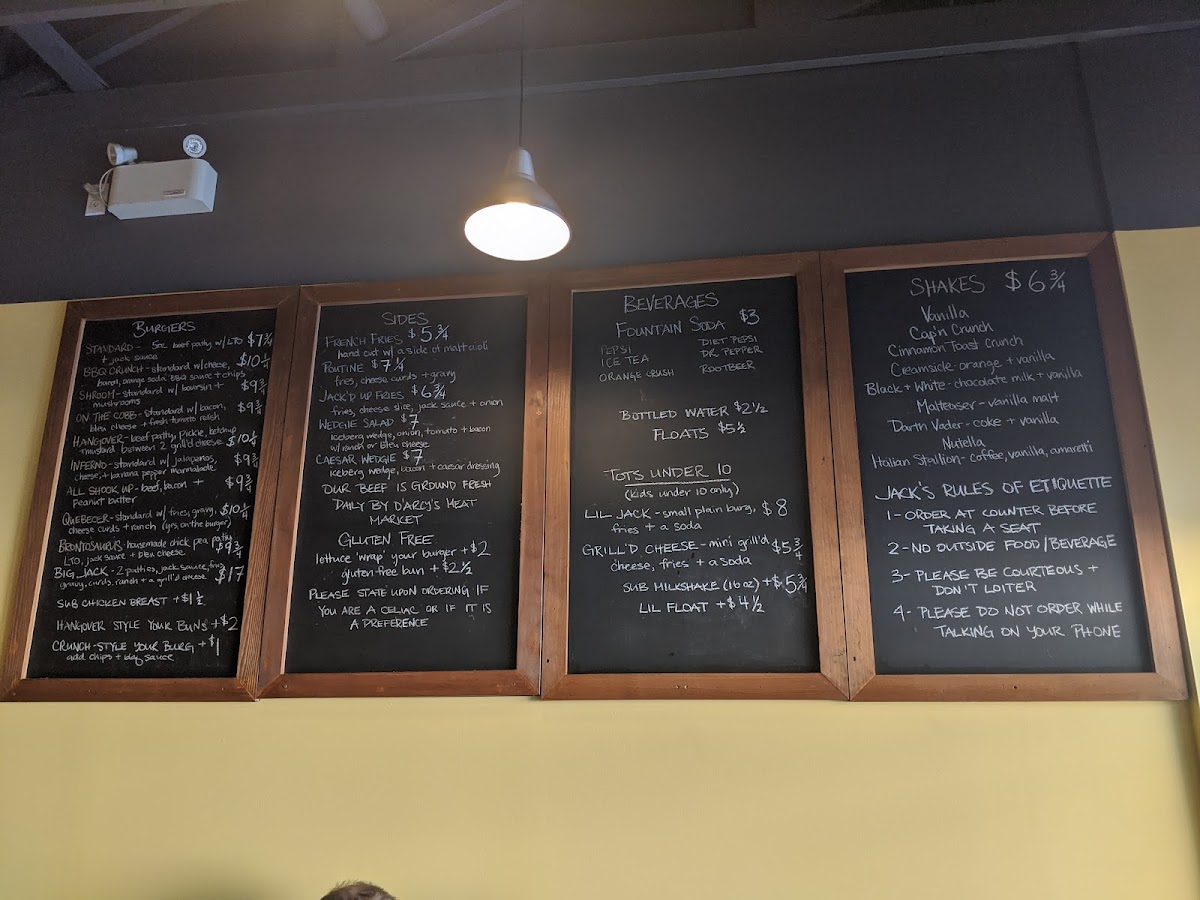 BURGERS
STANDARD - 5oz beef patty w/ LTO $7 3/4
+ jack sauce
BBQ CRUNCH - standard w/ cheese, $10 1/4
bacon, orange soda BBQ sauce + chips
SHROOM - standard w/ boursin + $9 3/4
mushrooms
ON THE COBB - standard w/ bacon, $9 3/4
bleu cheese + fresh tomato relish
HANGOVER - beef patty, pickle, ketchup
+ mustard between 2 grill'd cheese $10 1/4
INFERNO - standard w/ jalapenos, $9 3/4
cheese, + banana pepper marmalade
ALL SHOOK UP - beef, bacon + $9 3/4
Peanut butter
QUEBECER - standard w/ fries, gravy, $10 1/4
cheese curds + ranch (yes, on the burger)
BRONTOSAURUS - housemade chick pea patty $9 3/4
LTO, jack sauce + bleu cheese
BIG JACK - 2 patties, jack sauce, fries
gravy, curds, ranch + a grill'd cheese $17
SUB CHICKEN BREAST + $1 1/2
HANGOVER STYLE YOUR BUNS + $2
CRUNCH-STYLE YOUR BURG + $1
add chips + bbq sauce
SIDES
FRENCH FRIES $5 3/4
hand cut w/ a side of malt aioli
POUTINE $7 1/4
fries, cheese curds + gravy
JACK'D UP FRIES $6 3/4
fries, cheese slice, jack sauce + onion
WEDGIE SALAD $7
Iceberg wedge, onion, tomato + bacon
w/ ranch or bleu cheese
CAESAR WEDGIE $7
Iceberg wedge, bacon + caesar dressing
OUR BEEF IS GROUND FRESH
DAILY BY D'ARCY'S MEAT
MARKET
GLUTEN FREE
lettuce 'wrap' your burger + $2
gluten free bun + $2 1/2
PLEASE STATE UPON ORDERING IF
YOU ARE A CELIAC OR IF IT IS
A PREFERENCE
BEVERAGES
FOUNTAIN SODA $3
PEPSI DIET PEPSI
ICE TEA DR PEPPER
ORANGE CRUSH ROOTBEER
BOTTLED WATER $2 1/2
FLOATS $5 1/2
TOTS UNDER 10
(kids under 10 only)
LIL JACK - small plain burg, $8
fries + a soda
GRILL'D CHEESE - mini grill'd $5 3/4
cheese, fries + a soda
SUB MILKSHAKE (16oz) + $5 3/4
LIL FLOAT + $4 1/2
SHAKES $6 3/4
Vanilla
Cap'n Crunch
Cinnamon Toast Crunch
Creamsicle - orange + vanilla
Black + White - chocolate milk + vanilla
Malteaser - vanilla malt
Darth Vader - coke + vanilla
Nutella
Italian Stallion - coffee, vanilla, amaretti
JACK'S RULES OF ETIQUETTE
1 - ORDER AT COUNTER BEFORE
TAKING A SEAT
2 - NO OUTSIDE FOOD/BEVERAGE
3 - PLEASE BE COURTEOUS +
DON'T LOITER
4 - PLEASE DO NOT ORDER WHILE
TALKING ON YOUR PHONE